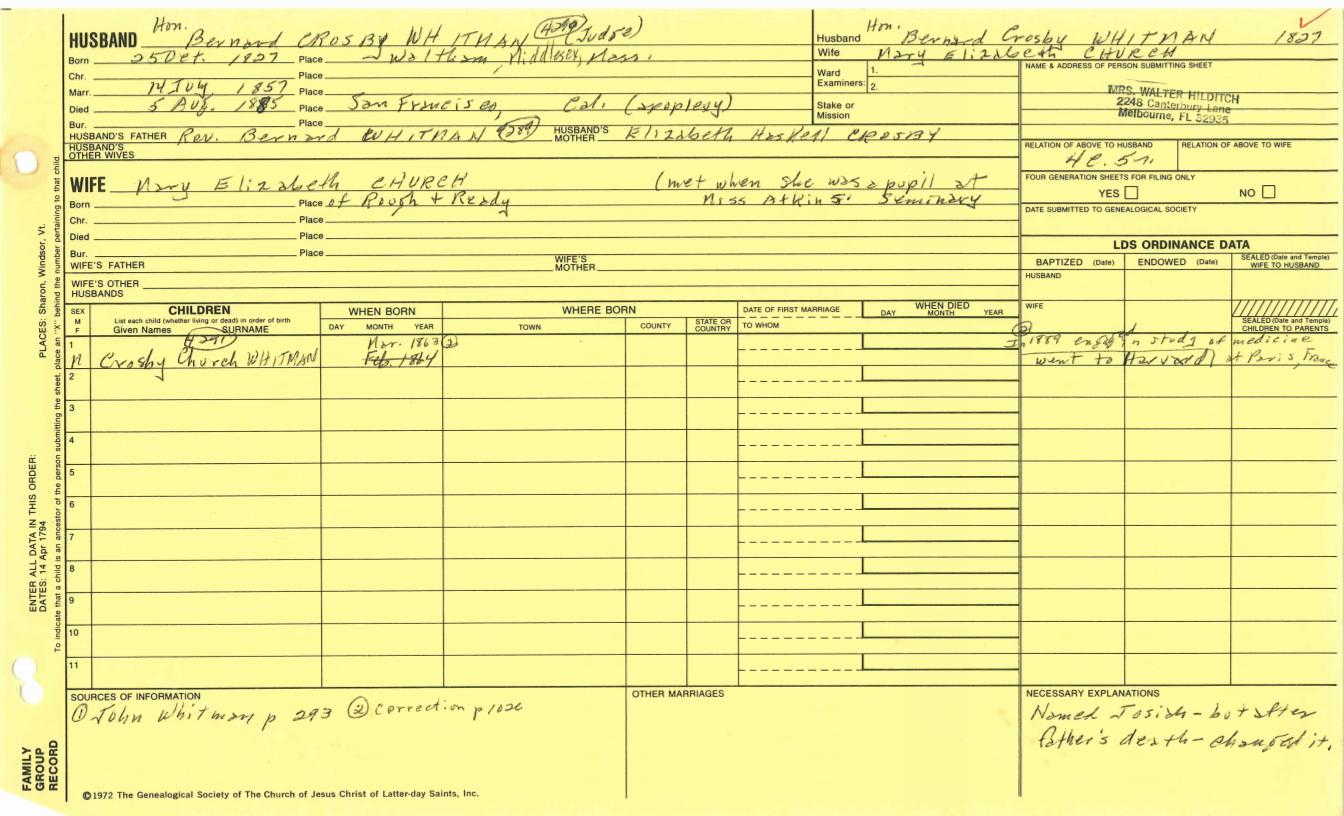 HUSBAND Hon. Bernard CROSBY WHITMAN 4290 (Judge)
Born 25 Oct. 1827 Place Waltham, Middlesex, Mass.
Chr. Place
Marr. 14 July 1857 Place
Died 5 Aug. 1885 Place San Francisco, Cal. (apoplexy)
Bur. Place
HUSBAND'S FATHER Rev. Bernard WHITMAN 4289 HUSBAND'S MOTHER Elizabeth Haskell CROSBY
HUSBAND'S OTHER WIVES
Husband Hon. Bernard Crosby WHITMAN 1827
Wife Mary Elizabeth CHURCH
Ward Examiners: 1. 2.
Stake or Mission
NAME & ADDRESS OF PERSON SUBMITTING SHEET
MRS. WALTER HILDITCH
2248 Canterbury Lane
Melbourne, FL 32935
RELATION OF ABOVE TO HUSBAND RELATION OF ABOVE TO WIFE
4C. 5r.
FOUR GENERATION SHEETS FOR FILING ONLY
YES NO
DATE SUBMITTED TO GENEALOGICAL SOCIETY
WIFE Mary Elizabeth CHURCH (met when she was a pupil at
Born Place of Rough + Ready Miss Atkins' Seminary
Chr. Place
Died Place
Bur. Place
WIFE'S FATHER WIFE'S MOTHER
WIFE'S OTHER HUSBANDS
LDS ORDINANCE DATA
BAPTIZED (Date) ENDOWED (Date) SEALED (Date and Temple) WIFE TO HUSBAND
HUSBAND
WIFE
SEALED (Date and Temple) CHILDREN TO PARENTS
SEX M F
CHILDREN
List each child (whether living or dead) in order of birth
Given Names SURNAME
WHEN BORN
DAY MONTH YEAR
WHERE BORN
TOWN COUNTY STATE OR COUNTRY
DATE OF FIRST MARRIAGE
TO WHOM
WHEN DIED
DAY MONTH YEAR
1 4291 Mar. 1863 2 2 In 1889 engaged in study of medicine
M Crosby Church WHITMAN Feb. 1864 went to Harvard) at Paris, France
2
3
4
5
6
7
8
9
10
11
SOURCES OF INFORMATION
1 John Whitman p 293 2 Correction p 1026
OTHER MARRIAGES
NECESSARY EXPLANATIONS
Named Josiah - but after
father's death - changed it.
©1972 The Genealogical Society of The Church of Jesus Christ of Latter-day Saints, Inc.
FAMILY GROUP RECORD
ENTER ALL DATA IN THIS ORDER:
DATES: 14 Apr 1794 PLACES: Sharon, Windsor, Vt.
To indicate that a child is an ancestor of the person submitting the sheet, place an "X" behind the number pertaining to that child.